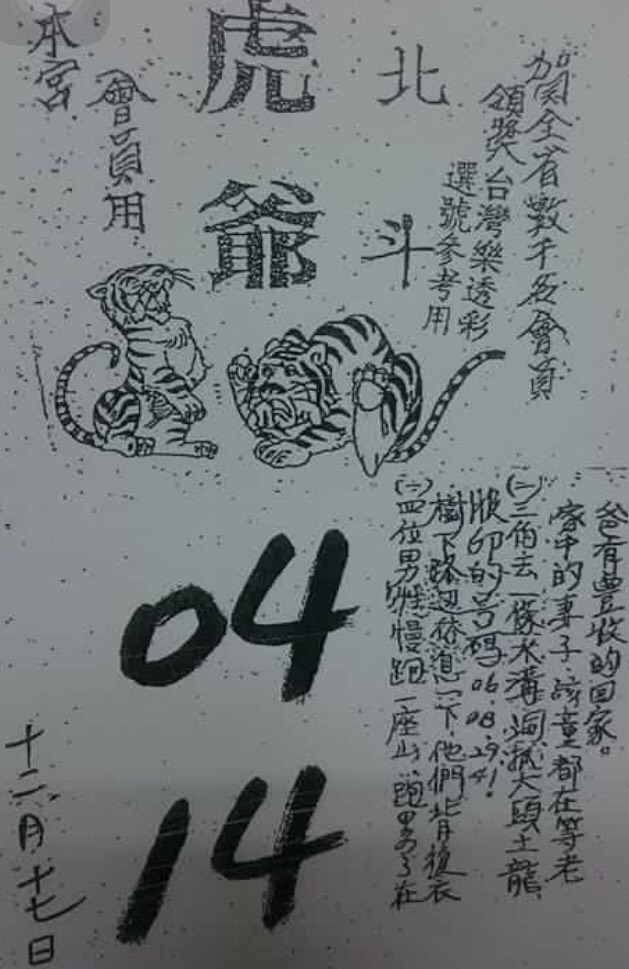 賀全省數千名會員
領獎台灣樂透彩
選號參考用
北斗
虎爺
會員用
本宮
(一)四位男性慢跑一座山、跑累了在
樹下路邊休息一下、他們背後衣
服印的号碼06.08.29.41
(二)三伯去一條水溝洞抓大頭土龍、
家中的妻子、該童都在等老
爸有豐收的回家。
04
14
十二月十七日